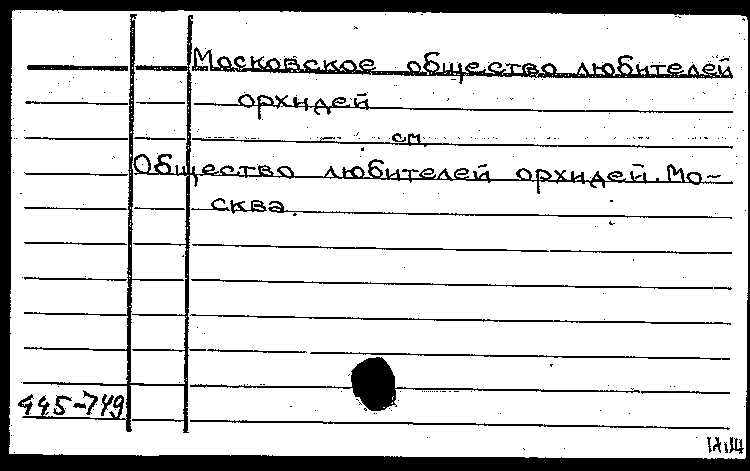 Московское общество любителей
орхидей
см.
Общество любителей орхидей. Мо-
сква.
445-749